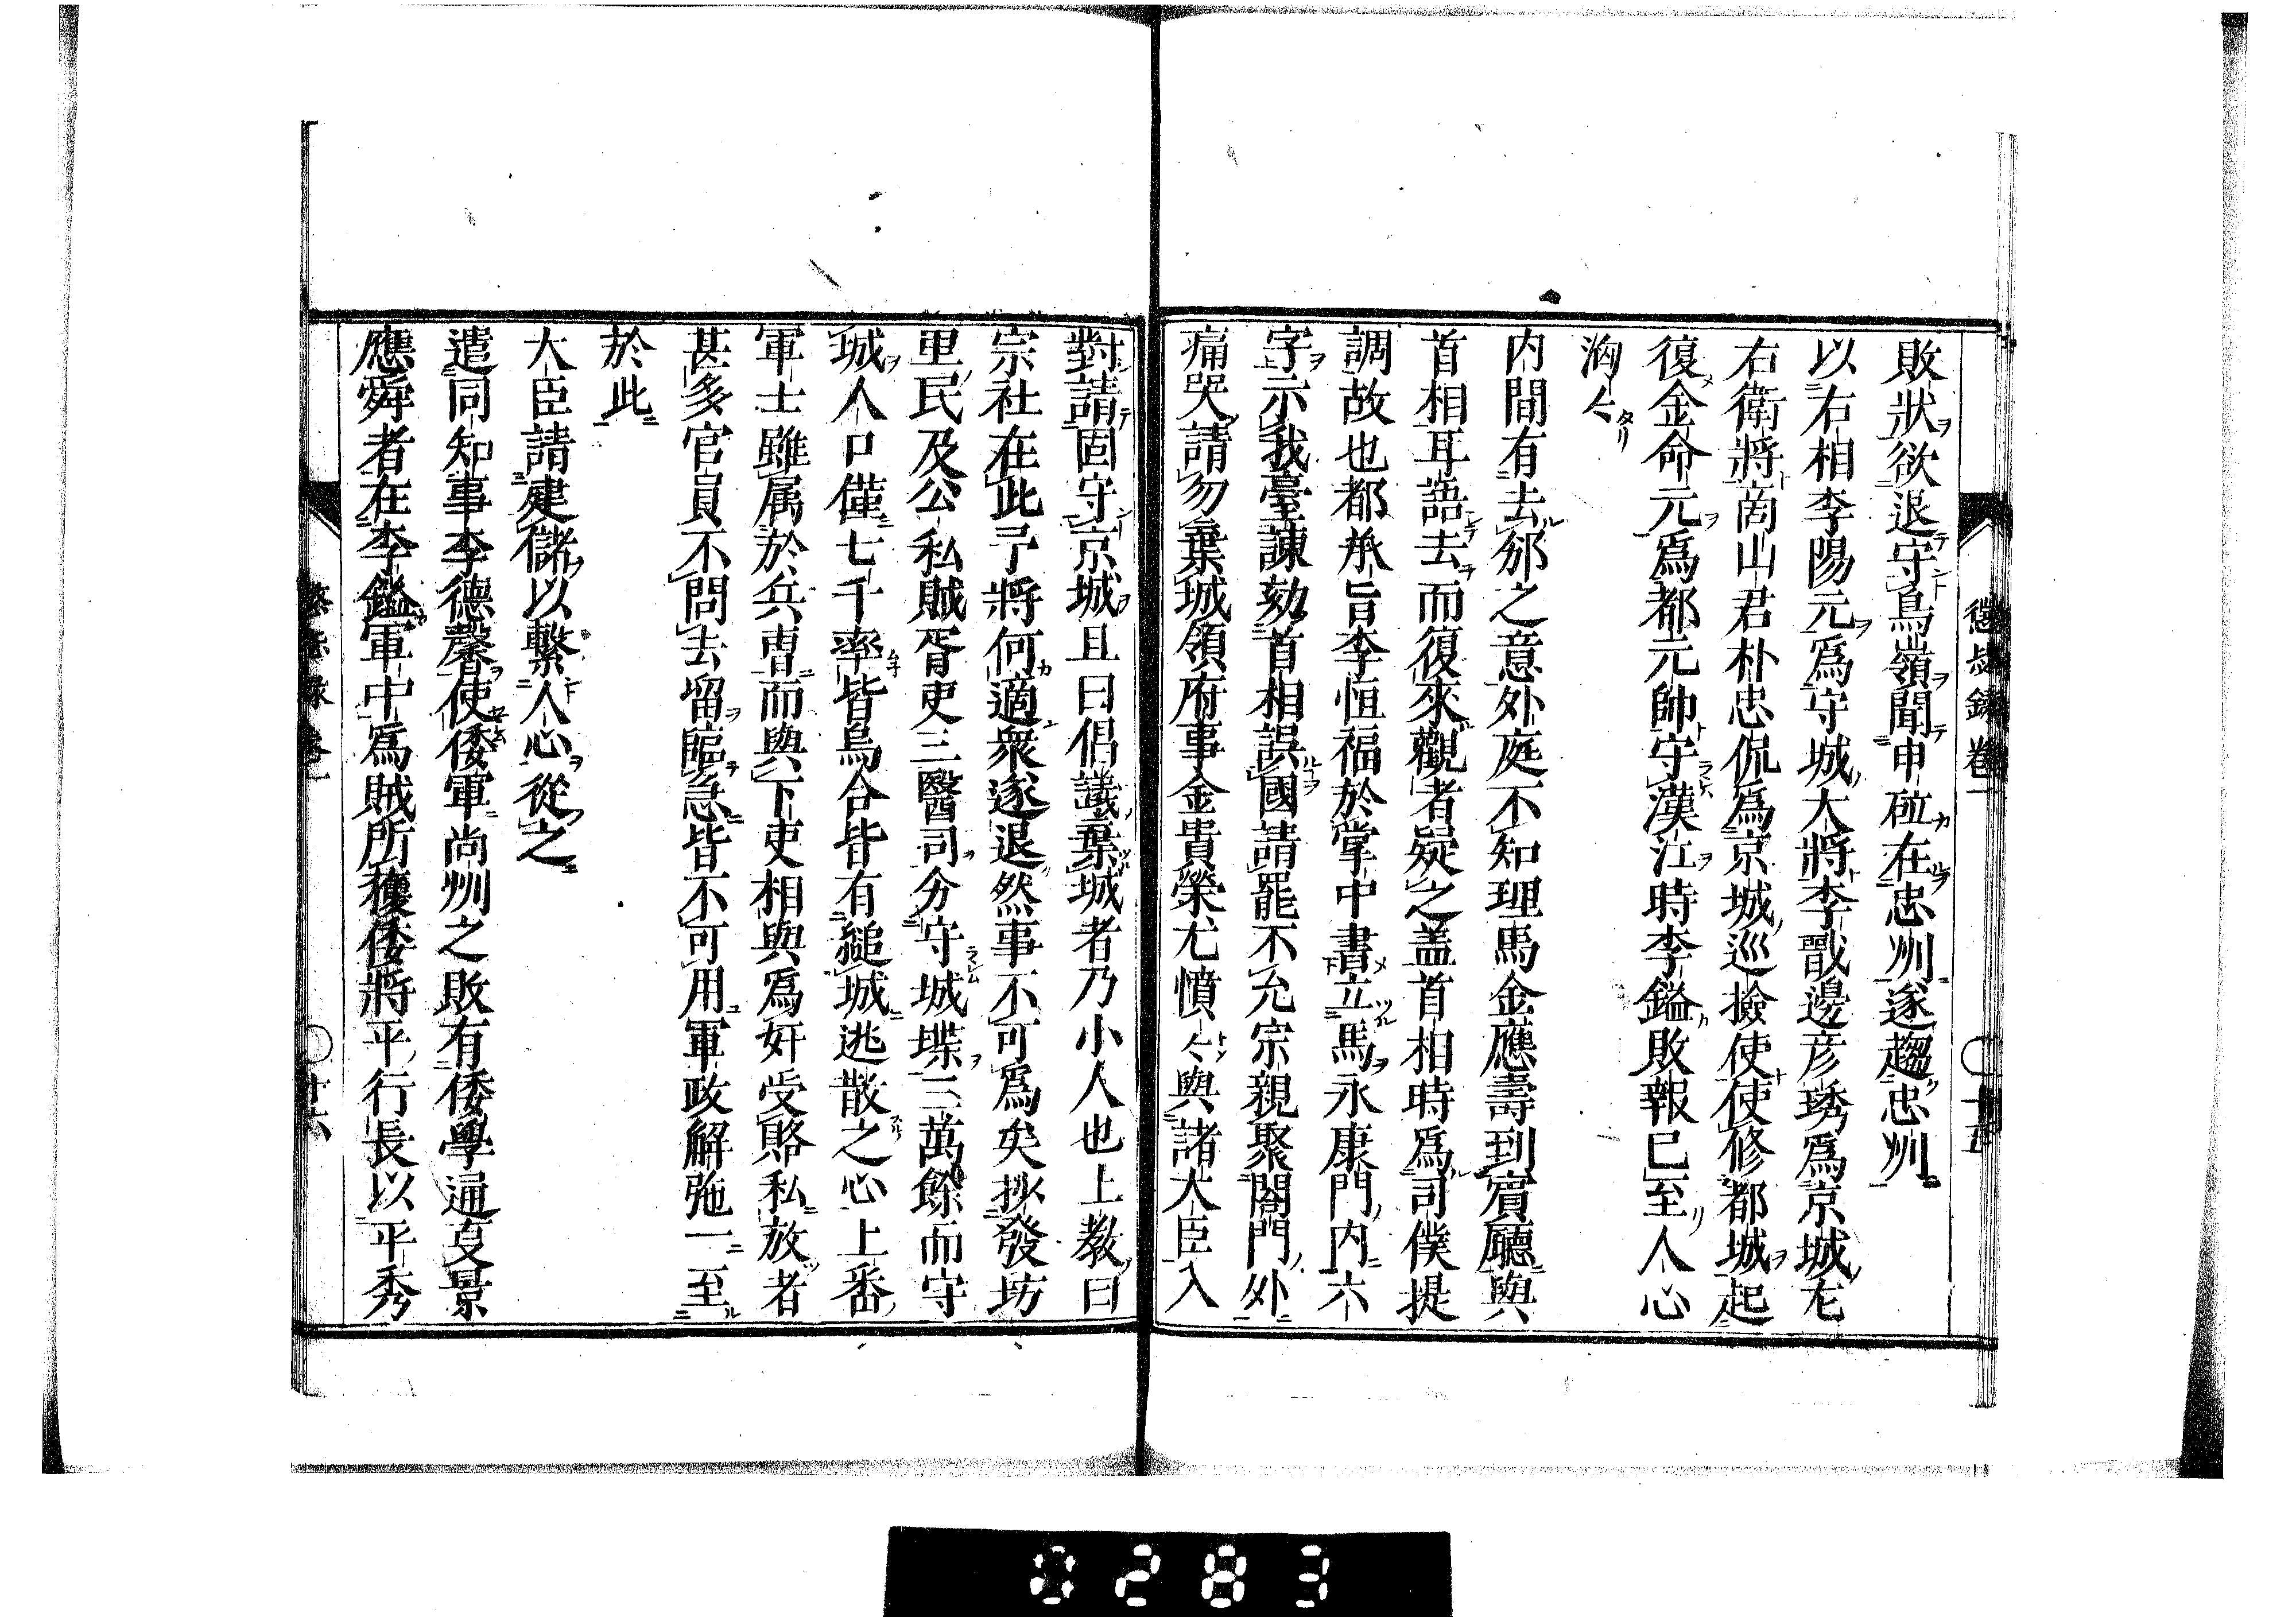 懲毖録卷一　十五
敗狀欲退守鳥嶺聞申砬在忠州遂趨忠州
以右相李陽元爲守城大將李戩邊彦琇爲京城左
右衛將商山君朴忠侃爲京城巡撿使使修都城起
復金命元爲都元帥守漢江時李鎰敗報已至人心
洶〻
内間有去邠之意外庭不知理馬金應壽到賓廳與
首相耳語去而復來觀者疑之盖首相時爲司僕提
調故也都承旨李恒福於掌中書立馬永康門内六
字示我臺諫劾首相誤國請罷不允宗親聚閤門外
痛哭請勿棄城領府事金貴榮尤憤〻與諸大臣入
對請固守京城且曰倡議棄城者乃小人也上教曰
宗社在此予將何適衆遂退然事不可爲矣抄發坊
里民及公私賤胥吏三醫司分守城堞三萬餘而守
城人口僅七千率皆烏合皆有縋城逃散之心上番
軍士雖属於兵曹而與下吏相與爲奸受賂私放者
甚多官員不問去留臨急皆不可用軍政解弛一至
於此
大臣請建儲以繫人心從之
遣同知事李德馨使倭軍尚州之敗有倭學通亊景
應舜者在李鎰軍中爲賊所獲倭將平行長以平秀
懲毖録卷一　廿六